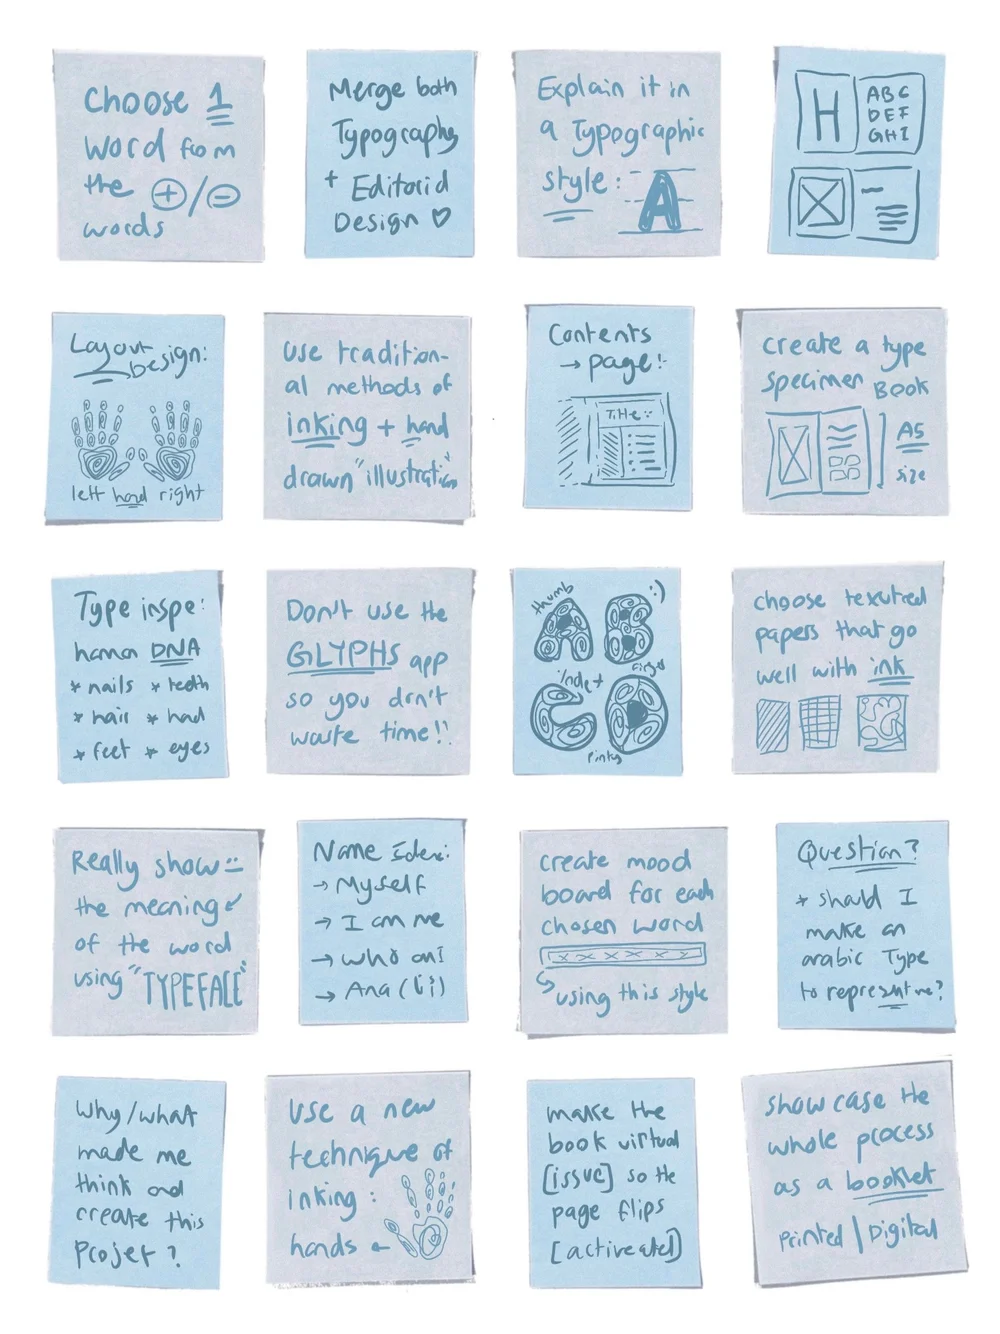 Choose 1
word from
the +/-
words
Merge both
Typography
+ Editorial
Design ♡
Explain it in
a Typographic
style:
A
H
ABC
DEF
GHI
Layout
Design:
left hand right
use tradition-
al methods of
inking + hand
drawn "illustration"
Contents
→ page!:
Title
create a type
specimen Book
A5
size
Type inspo:
human DNA
* nails * teeth
* hair * hand
* feet * eyes
Don't use the
GLYPHS app
so you don't
waste time!!
thumb
:)
A B
index
C O
pinky
choose textured
papers that go
well with ink
Really show
the meaning
of the word
using "TYPEFACE"
Name Idea:
→ Myself
→ I am me
→ who am I
→ Ana (انا)
create mood
board for each
chosen word
x x x x x x
using this style
Question?
* should I
make an
arabic Type
to represent me?
Why/what
made me
think and
create this
Projet?
use a new
technique of
inking:
hands ←
make the
book virtual
[issuu] so the
page flips
showcase the
whole process
as a booklet
Printed | Digital